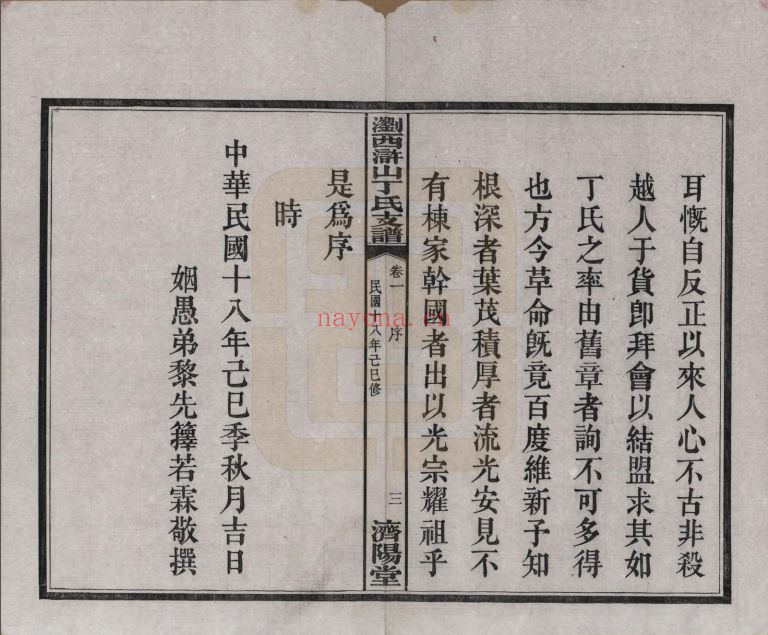 耳慨自反正以來人心不古非殺
越人于貨卽拜會以結盟求其如
丁氏之率由舊章者詢不可多得
也方今革命旣竟百度維新予知
根深者葉茂積厚者流光安見不
有棟家幹國者出以光宗耀祖乎
瀏西滸山丁氏支譜
卷一 序
民國十八年己巳修
三
濟陽堂
是爲序
時
中華民國十八年己巳季秋月吉日
姻愚弟黎先籜若霖敬撰
nayona.cn